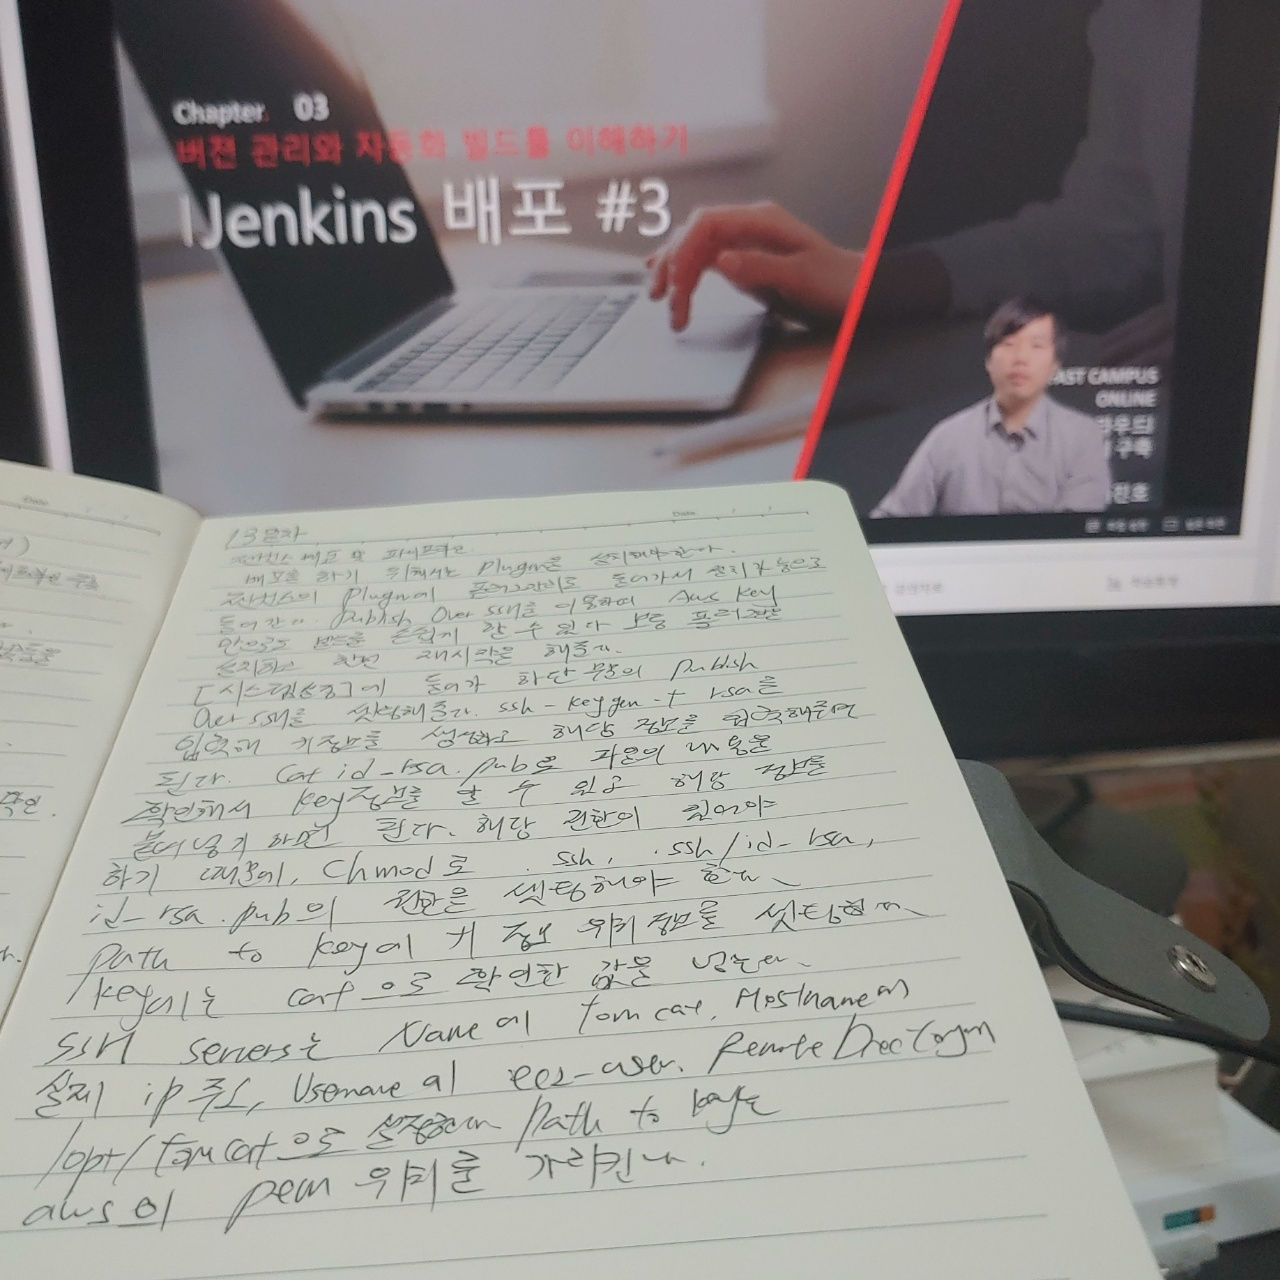 Chapter. 03
버전 관리와 자동화 빌드를 이해하기
Jenkins 배포 #3
FAST CAMPUS
ONLINE
구축
진호
Date
Date
13일차
젠킨스 배포 및 파이프라인
배포를 하기 위해서는 Plugin을 설치해야 한다.
젠킨스의 Plugin에 플러그인관리로 들어가서 설치가능으로
들어간다. Publish Over SSH를 이용하여 AWS Key
만으로도 빌드를 손쉽게 할 수 있다 보통 플러그인을
설치하고 한번 재시작을 해준다.
[시스템설정]에 들어가 하단 부분의 Publish
Over SSH를 셋팅해준다. ssh-keygen -t rsa을
입력해 키정보를 생성하고 해당 정보를 입력해주면
된다. Cat id_rsa.pub로 파일의 내용을
확인해서 key정보를 알 수 있고 해당 정보를
붙여넣기 하면 된다. 해당 권한이 있어야
하기 때문에, Chmod로 .ssh, .ssh/id_rsa,
id_rsa.pub의 권한을 셋팅해야 한다.
path to key에 키 정보 위치정보를 셋팅한다.
key에는 cat으로 확인한 값을 넣는다.
SSH servers는 Name에 tomcat, Hostname에
실제 ip주소, Username에 ec2-user, Remote Directory에
/opt/tomcat으로 설정한다 Path to key는
aws의 pem 위치를 가리킨다.